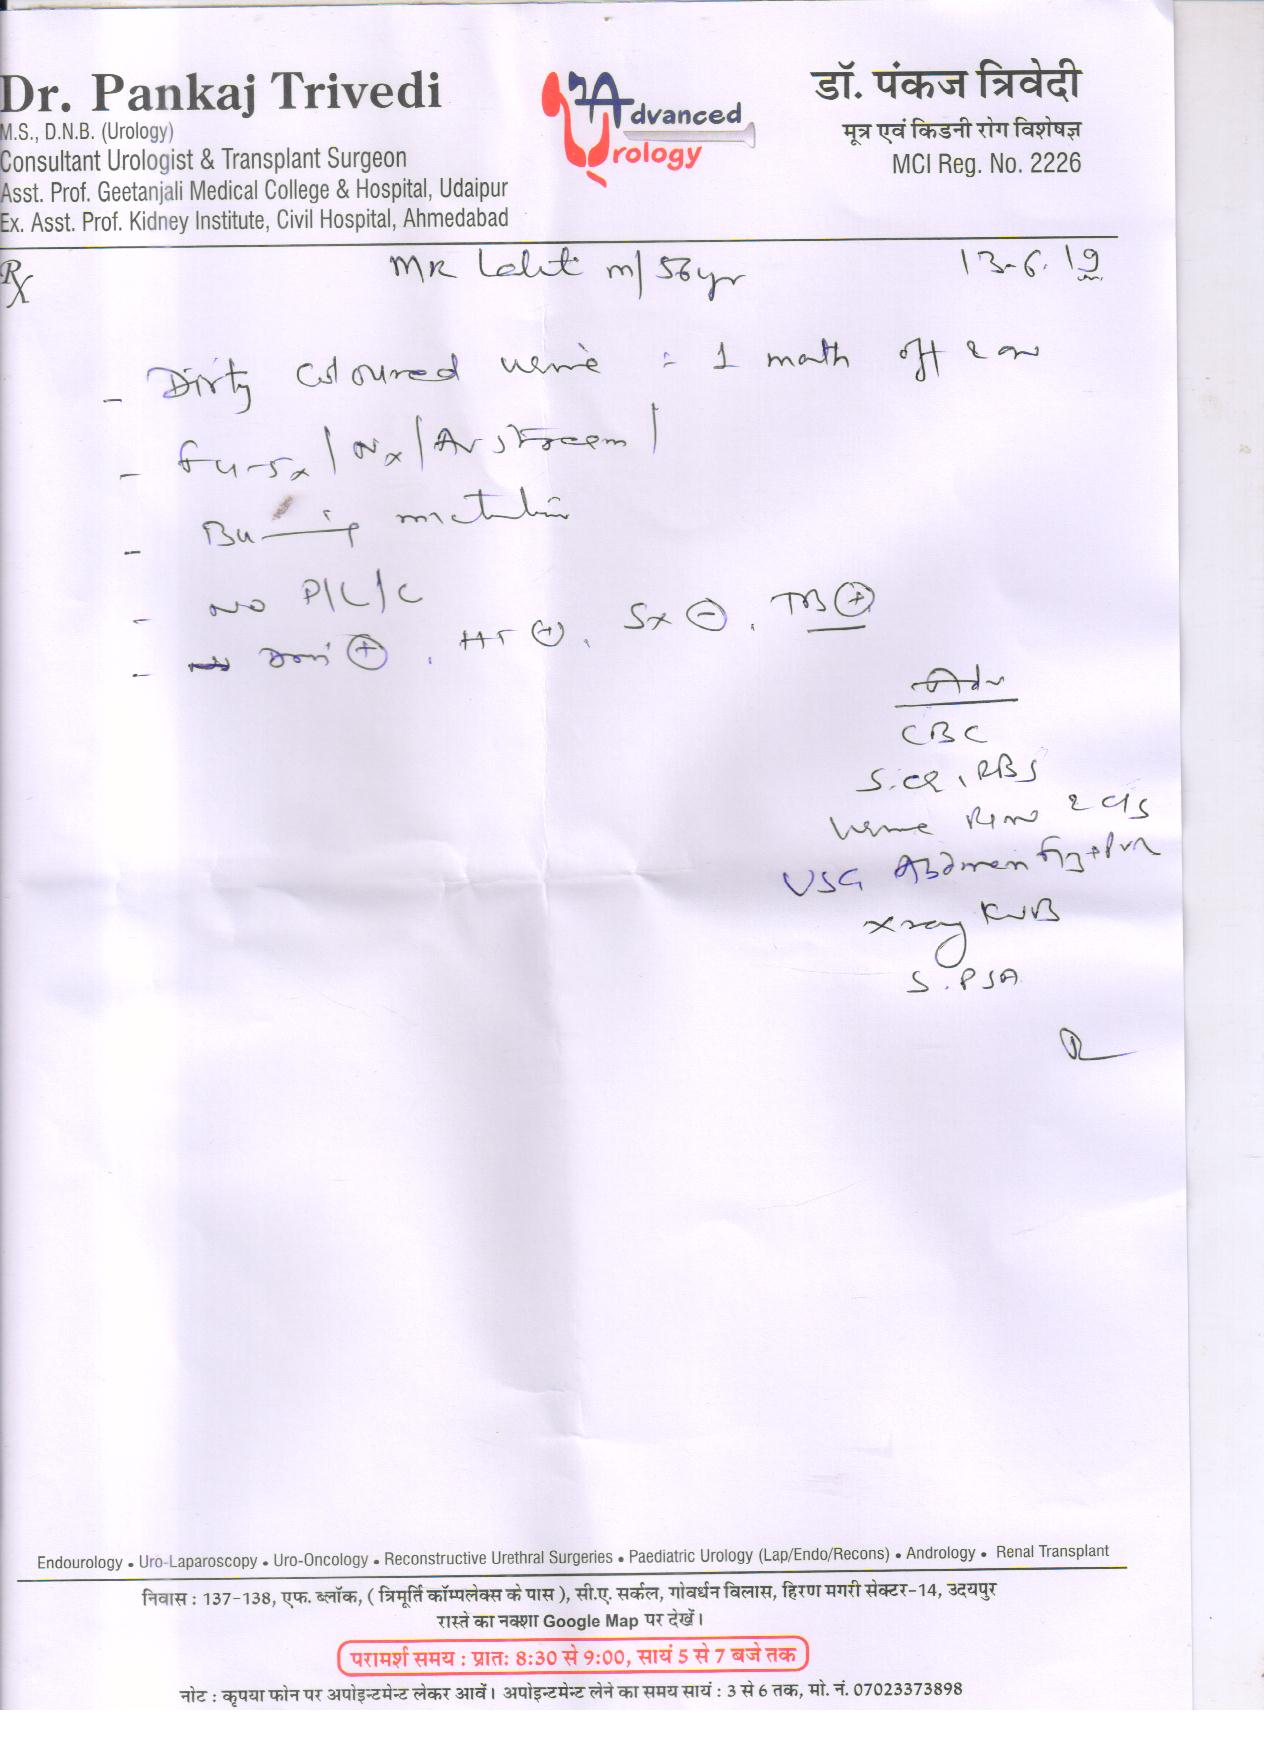 Dr. Pankaj Trivedi
M.S., D.N.B. (Urology)
Consultant Urologist & Transplant Surgeon
Asst. Prof. Geetanjali Medical College & Hospital, Udaipur
Ex. Asst. Prof. Kidney Institute, Civil Hospital, Ahmedabad
Advanced
Urology
डॉ. पंकज त्रिवेदी
मूत्र एवं किडनी रोग विशेषज्ञ
MCI Reg. No. 2226
Rx
MR Lalit m/56yr 13-6.19
- Dirty coloured urine : 1 month off & on
- Nx
- Burning
- NO P/L/C
- HT (+), Sx (-), TB (+)
Adv
CBC
S.CR, RBS
Urine
USG Abdomen
Xray KUB
S.PSA
Endourology • Uro-Laparoscopy • Uro-Oncology • Reconstructive Urethral Surgeries • Paediatric Urology (Lap/Endo/Recons) • Andrology • Renal Transplant
निवास : 137-138, एफ. ब्लॉक, ( त्रिमूर्ति कॉम्पलेक्स के पास ), सी.ए. सर्कल, गोवर्धन विलास, हिरण मगरी सेक्टर-14, उदयपुर
रास्ते का नक्शा Google Map पर देखें।
परामर्श समय : प्रातः 8:30 से 9:00, सायं 5 से 7 बजे तक
नोट : कृपया फोन पर अपोइन्टमेन्ट लेकर आवें। अपोइन्टमेन्ट लेने का समय सायं : 3 से 6 तक, मो. नं. 07023373898